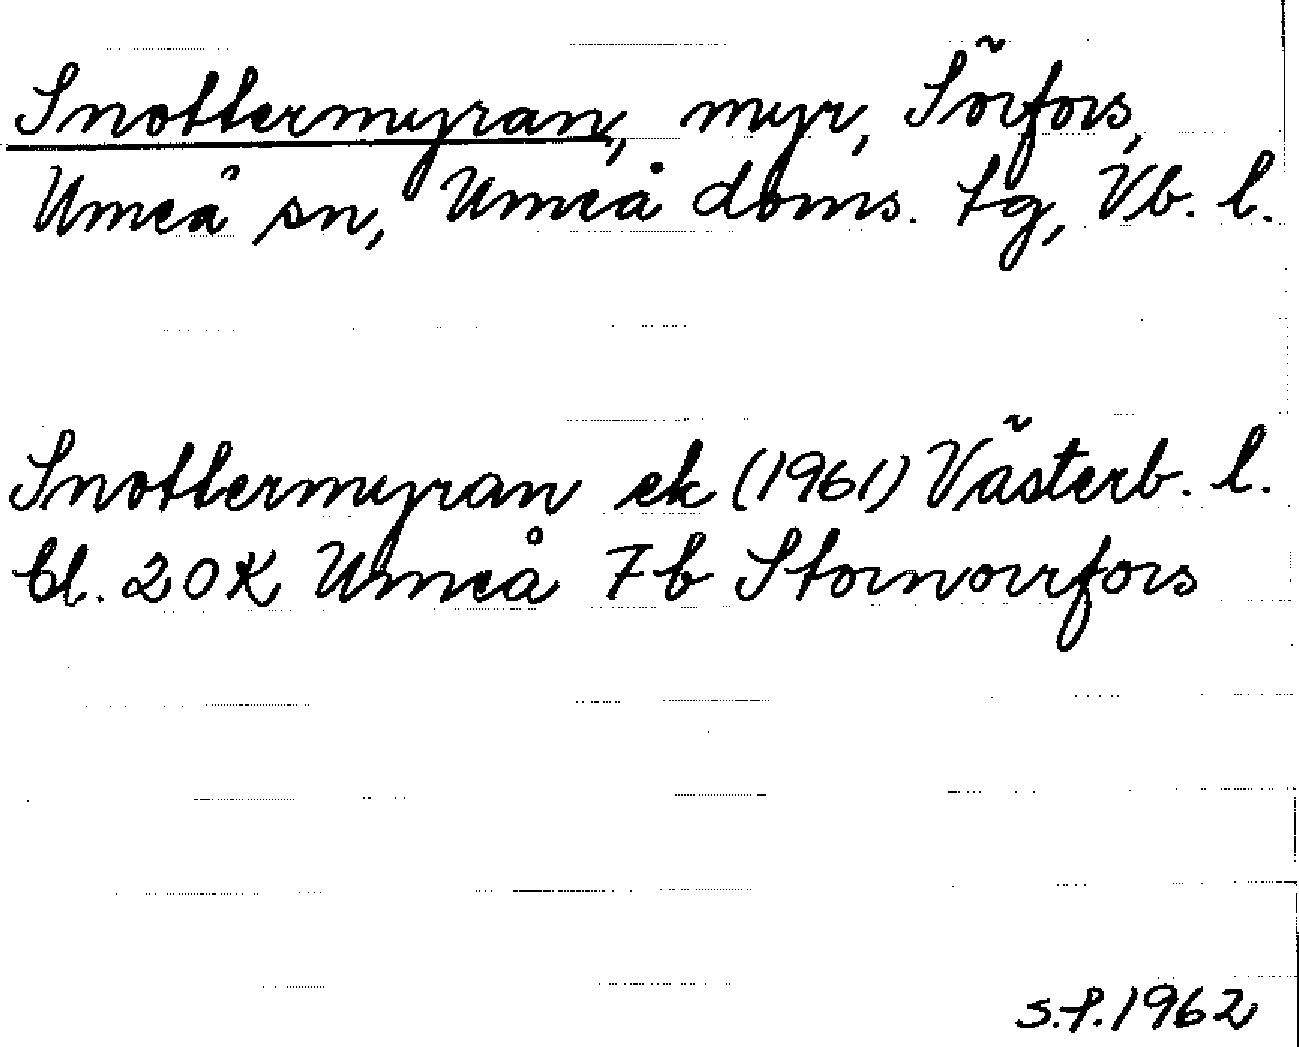 Snottermyran, myr, Sörfors,
Umeå sn, Umeå doms. tg, Vb. l.
Snottermyran ek (1961) Västerb. l.
bl. 20K Umeå 7b Stornorrfors
s.f. 1962